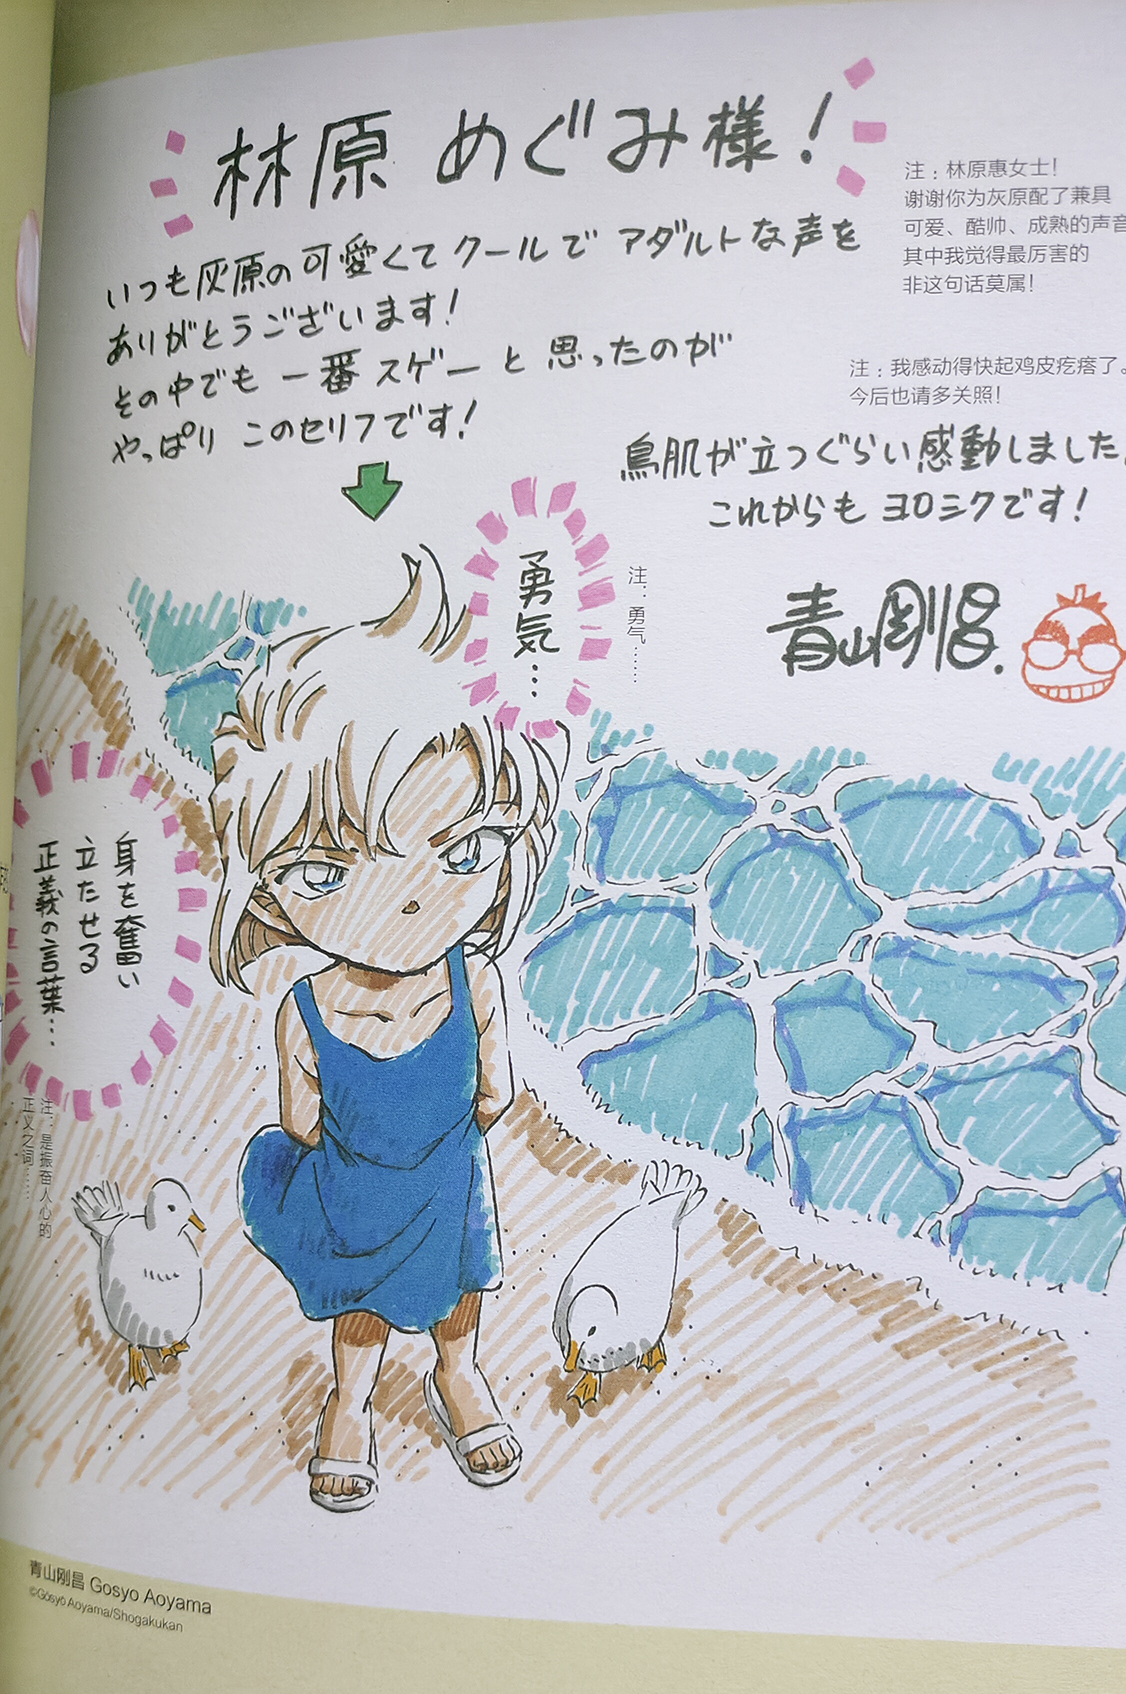 林原 めぐみ様!
いつも灰原の可愛くてクールで アダルトな声を
ありがとうございます!
その中でも 一番 スゲーと 思ったのが
やっぱり このセリフです!
注:林原惠女士!
谢谢你为灰原配了兼具
可爱、酷帅、成熟的声音
其中我觉得最厉害的
非这句话莫属!
注:我感动得快起鸡皮疙瘩了。
今后也请多关照!
鳥肌が立つぐらい感動しました
これからも ヨロシクです!
青山剛昌.
勇気…
注:勇气……
身を奮い
立たせる
正義の言葉…
注:是振奋人心的
正义之词……
青山刚昌 Gosyo Aoyama
©Gosyo Aoyama/Shogakukan